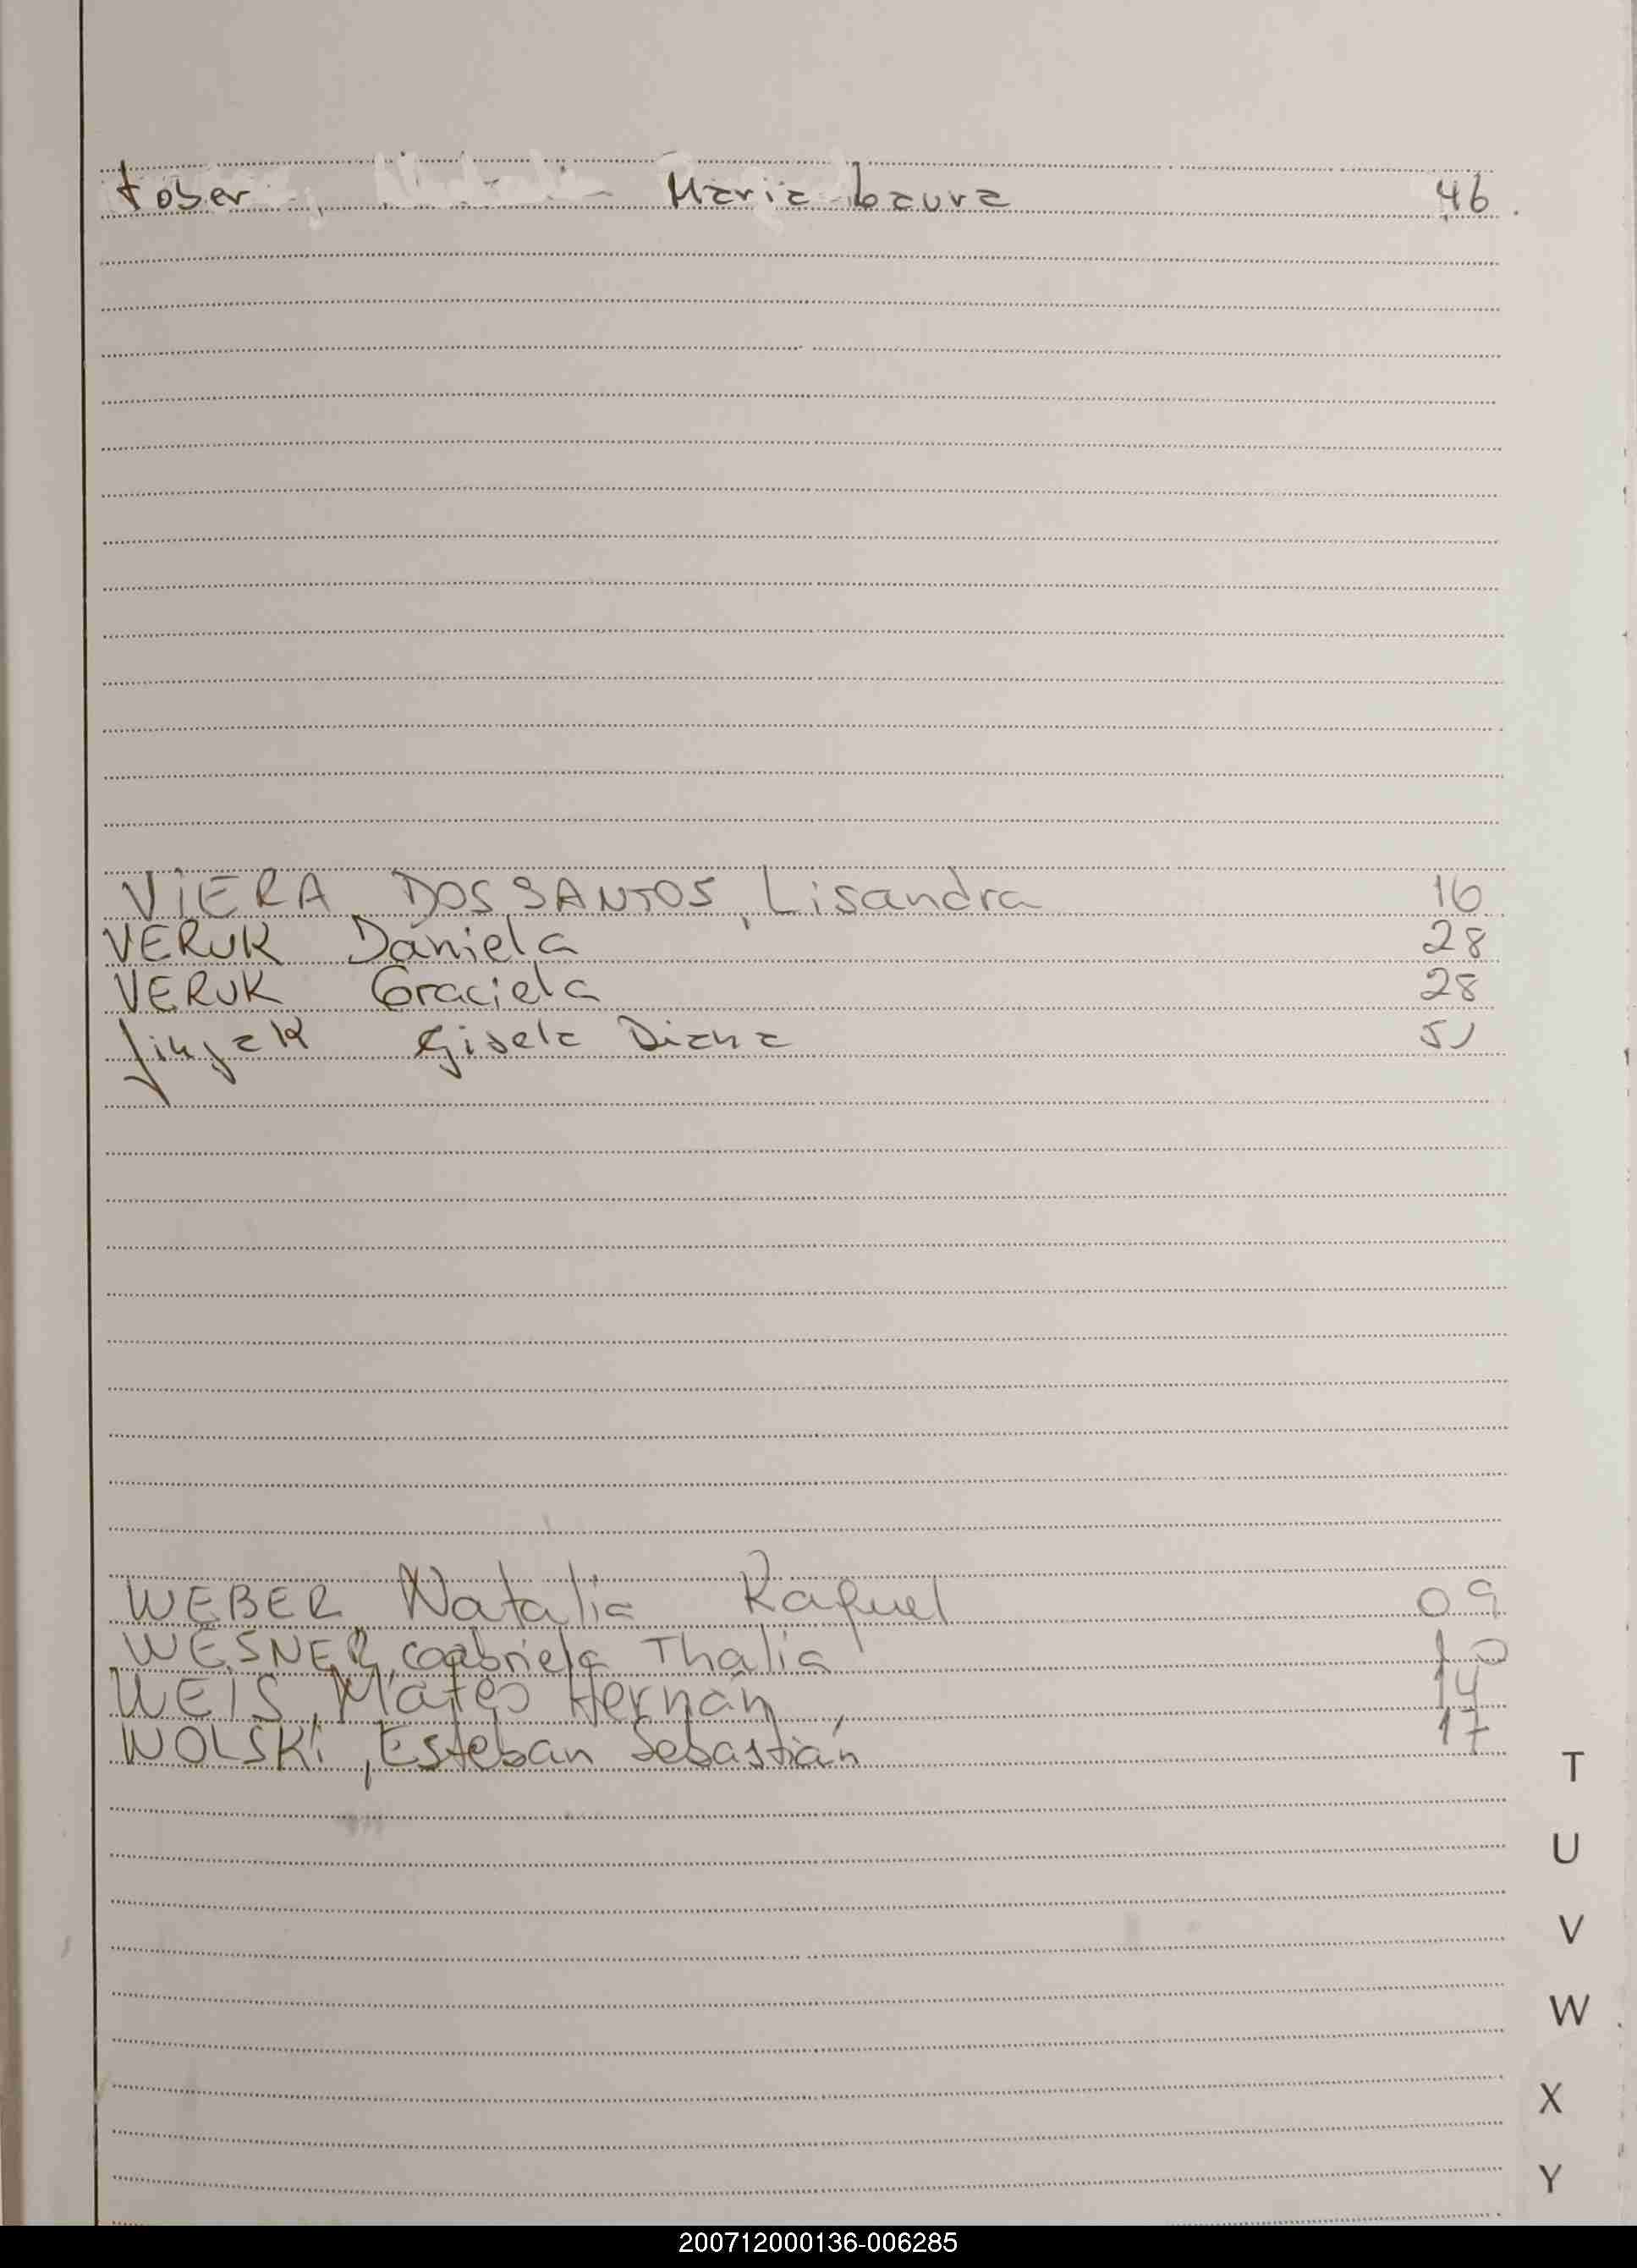 tober Maria Laura 46.
VIERA DOS SANTOS, Lisandra 16
VERUK Daniela 28
VERUK Graciela 28
Gisela Diana 51
WEBER Natalia Raquel 09
WESNER, Gabriela Thalia 10
WEIS, Mateo Hernán, 14
WOLSKI, Esteban Sebastián 17
T
U
V
W
X
Y
200712000136-006285